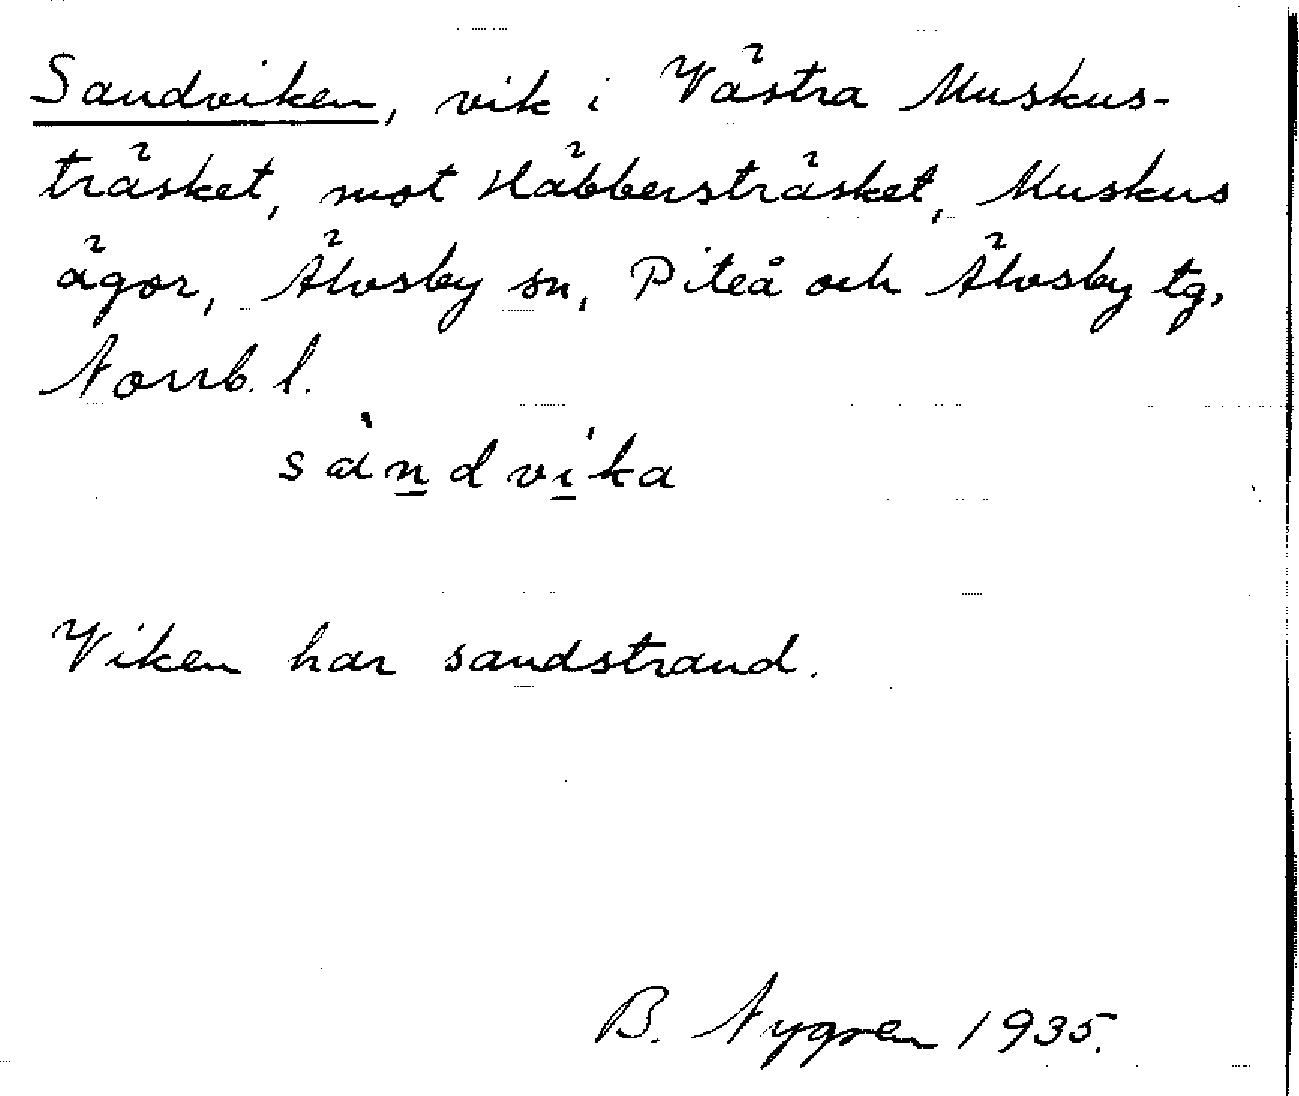 Sandviken, vik i Västra Muskus-
träsket, mot Häbbersträsket, Muskus
ägor, Älvsby sn, Piteå och Älvsby tg,
Norrb. l.
sàndvi̱ka
Viken har sandstrand.
B. Nygren 1935.